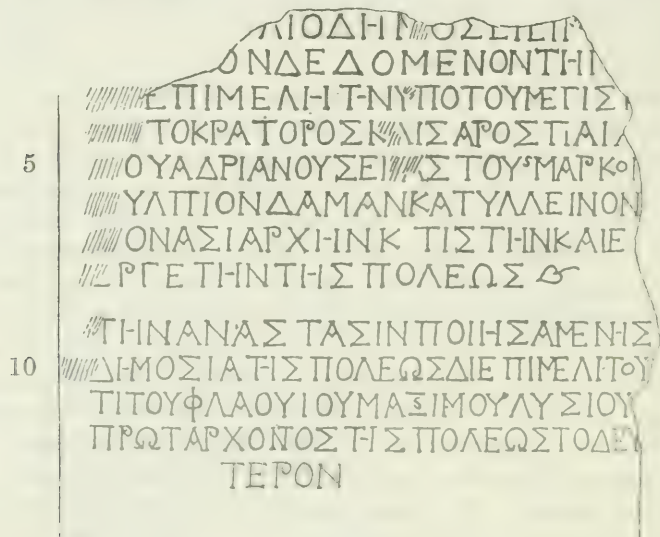 ΟΝΔΕΔΟΜΕΝΟΝΤΗΙ
ΕΠΙΜΕΛΗΤΗΝΥΠΟΤΟΥΜΕΓΙΣ
ΤΟΚΡΑΤΟΡΟΣΚ ΙΣΑΡΟΣΤΙΑΙΑ
5 ΟΥΑΔΡΙΑΝΟΥΣΕΙ ΑΣΤΟΥΣΜΑΡΚΟ
ΥΛΠΙΟΝΔΑΜΑΝΚΑΤΥΛΛΕΙΝΟΝ
ΟΝΑΣΙΑΡΧΗΝΚΤΙΣΤΗΝΚΑΙΕ
ΕΡΓΕΤΗΝΤΗΣΠΟΛΕΩΣ
ΤΗΝΑΝΑΣΤΑΣΙΝΠΟΙΗΣΑΜΕΝΗΣ
10 ΔΗΜΟΣΙΑΤΗΣΠΟΛΕΩΣΔΙΕΠΙΜΕΛΗΤΟΥ
ΤΙΤΟΥΦΛΑΟΥΙΟΥΜΑΞΙΜΟΥΛΥΣΙΟΥ
ΠΡΩΤΑΡΧΟΝΤΟΣΤΗΣΠΟΛΕΩΣΤΟΔΕΥ
ΤΕΡΟΝ